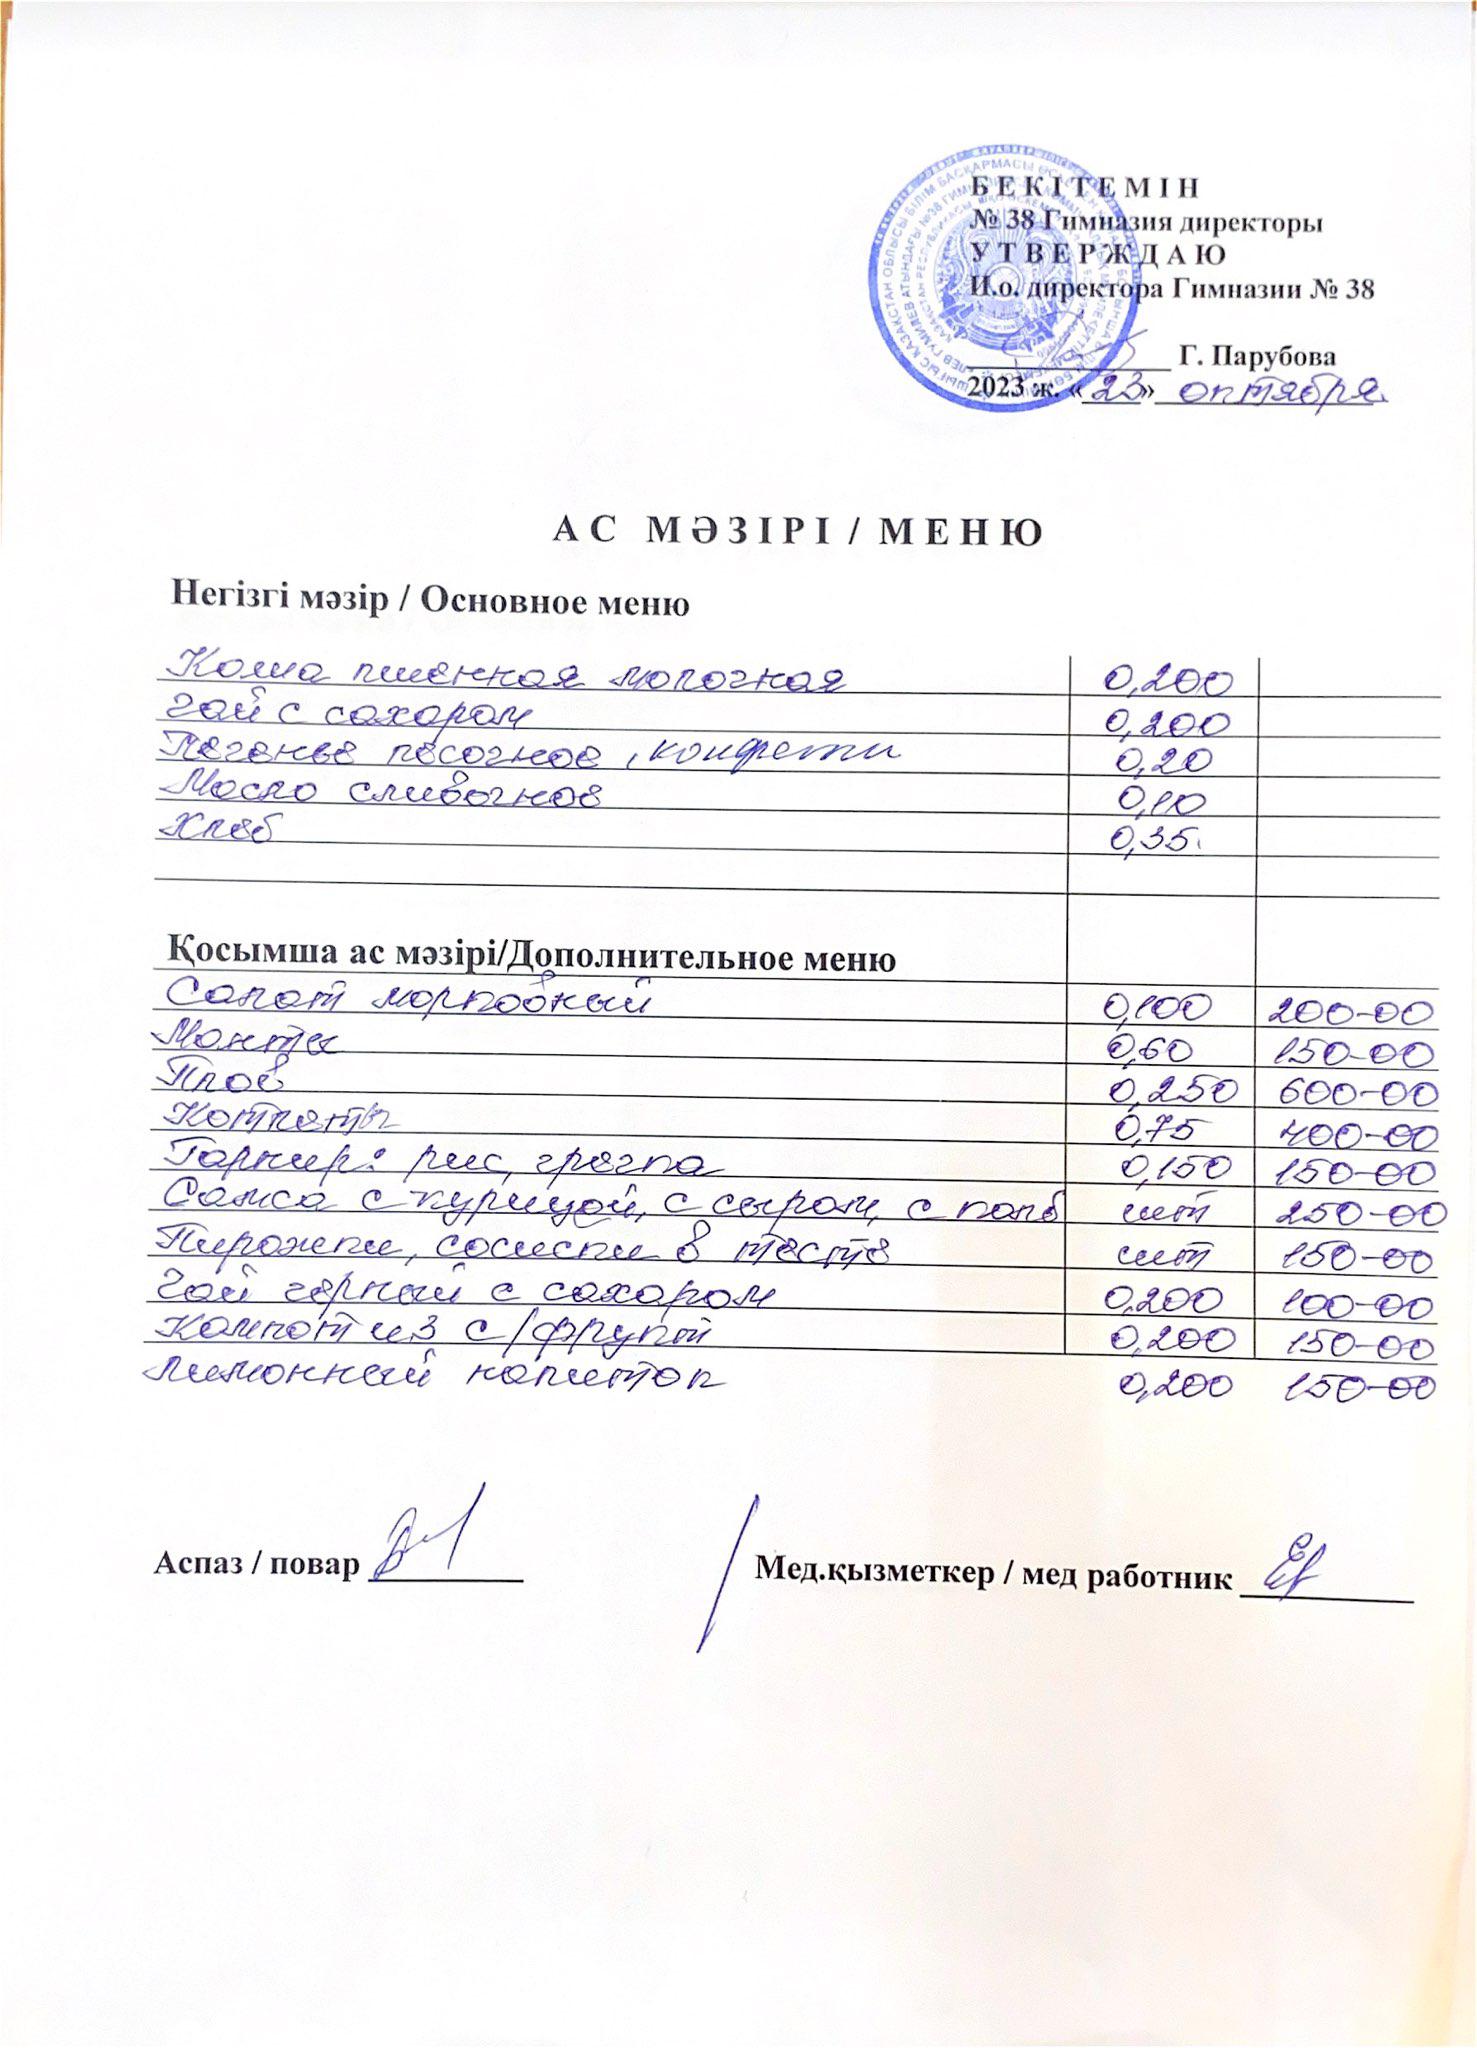 Б Е К І Т Е М І Н
№ 38 Гимназия директоры
У Т В Е Р Ж Д А Ю
И.о. директора Гимназии № 38
Г. Парубова
2023 ж. «23» октября.
А С М Ә З І Р І / М Е Н Ю
Негізгі мәзір / Основное меню
Каша пшенная молочная 0,200
Чай с сахаром 0,200
Печенье песочное, конфети 0,20
Масло сливочное 0,10
Хлеб 0,35.
Қосымша ас мәзірі/Дополнительное меню
Салат морковный 0,100 200-00
Манты 0,60 150-00
Плов 0,250 600-00
Котлеты 0,75 400-00
Гарнир: рис, гречка 0,150 150-00
Самса с курицей, с сыром, с колб шт 250-00
Пирожки, сосиски в тесте шт 150-00
Чай черный с сахаром 0,200 100-00
Компот из с/фрукт 0,200 150-00
Лимонный напиток 0,200 150-00
Аспаз / повар
Мед.қызметкер / мед работник